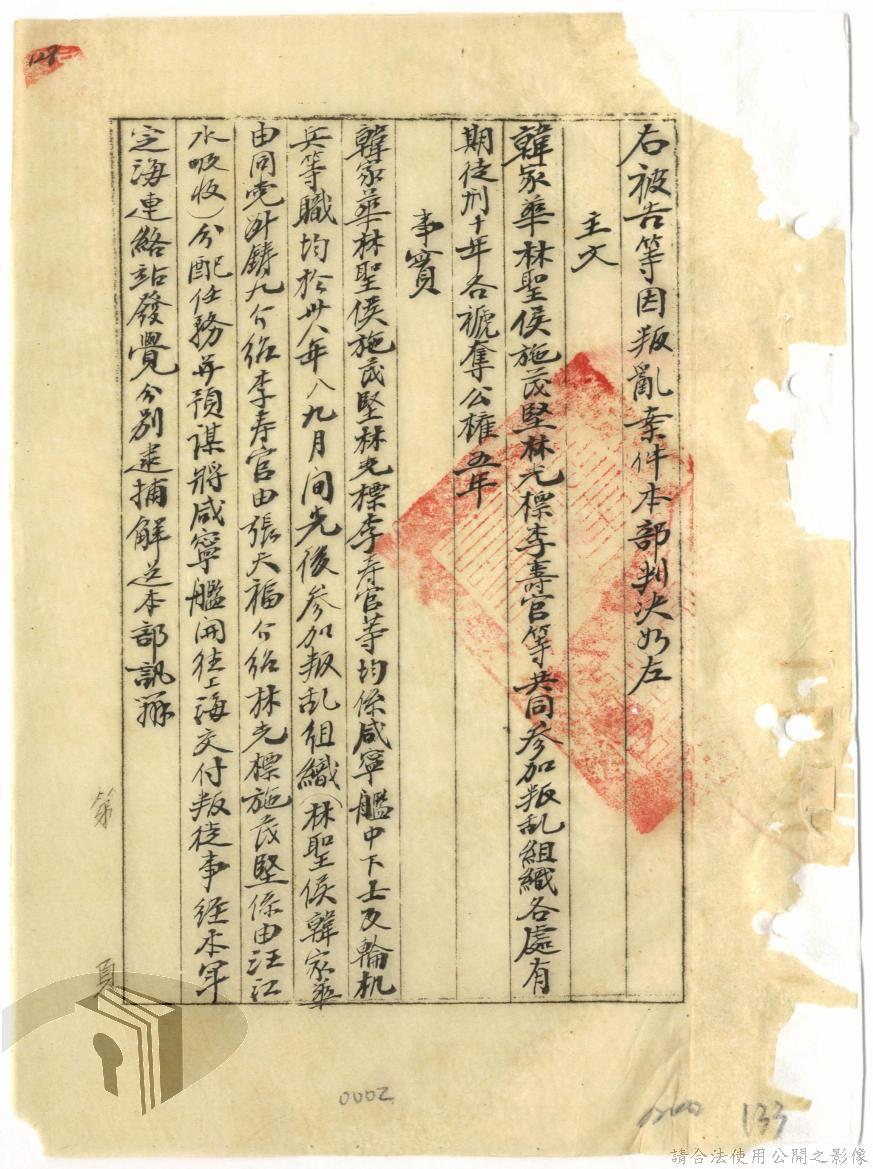 右被告等因叛亂案件本部判決如左
主文
韓家華林聖俟施茂堅林光標李壽官等共同參加叛乱組織各處有
期徒刑十年各褫奪公權五年
事實
韓家華林聖俟施茂堅林光標李寿官等均係咸寧艦中下士及輪机
兵等職均於卅八年八九月間先後參加叛乱組織(林聖俟韓家華
由同党 鑄九介紹李寿官由張天福介紹林光標施茂堅係由汪江
水吸收)分配任務並預謀將咸寧艦開往上海交付叛徒事經本軍
定海連絡站發覺分別逮捕解送本部訊辦
第 頁
128
0002
133
請合法使用公開之影像